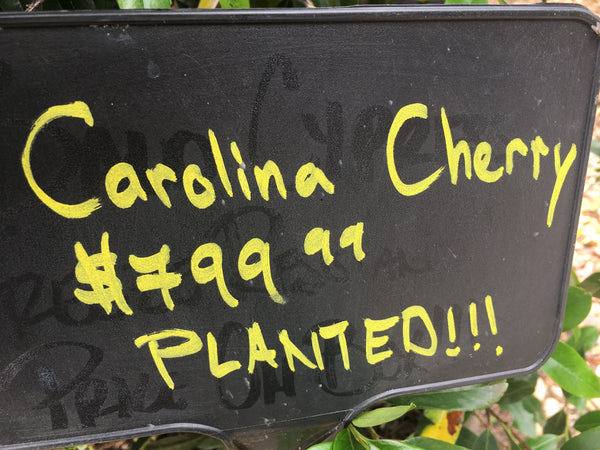 Carolina Cherry
$799 99
PLANTED!!!